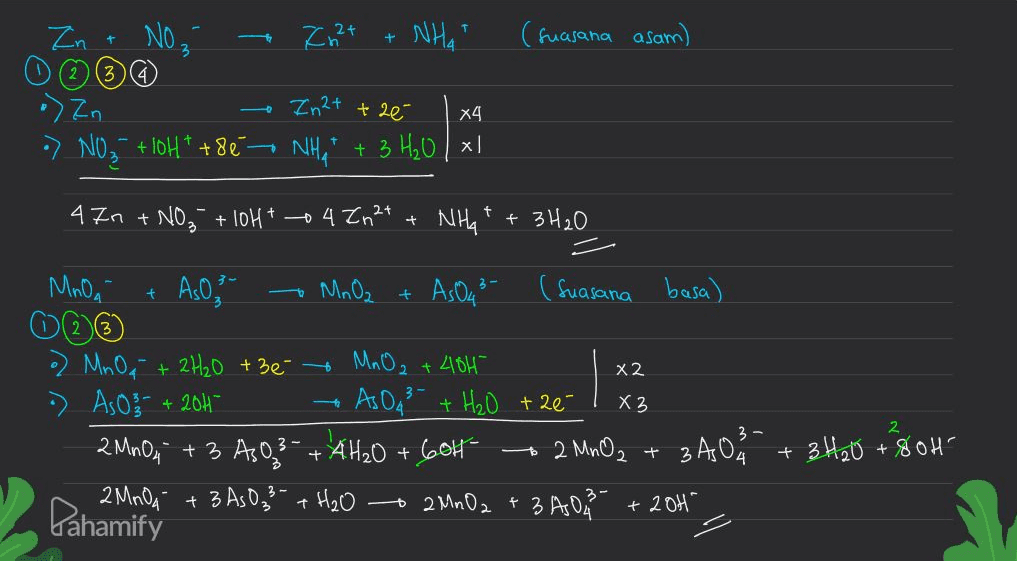 Zn + NO₃⁻ → Zn²⁺ + NH₄⁺ (suasana asam)
① ② ③ ④
•> Zn → Zn²⁺ + 2e⁻ | x4
•> NO₃⁻ + 10H⁺ + 8e⁻ → NH₄⁺ + 3 H₂O | x1
4 Zn + NO₃⁻ + 10H⁺ → 4 Zn²⁺ + NH₄⁺ + 3H₂O
MnO₄⁻ + AsO₃³⁻ → MnO₂ + AsO₄³⁻ (suasana basa)
① ② ③
•> MnO₄⁻ + 2H₂O + 3e⁻ → MnO₂ + 4OH⁻ | x2
•> AsO₃³⁻ + 2OH⁻ → AsO₄³⁻ + H₂O + 2e⁻ | x3
1 2
2 MnO₄⁻ + 3 AsO₃³⁻ + 4H₂O + 6OH⁻ → 2 MnO₂ + 3 AsO₄³⁻ + 3H₂O + 8OH⁻
2MnO₄⁻ + 3 AsO₃³⁻ + H₂O → 2 MnO₂ + 3 AsO₄³⁻ + 2OH⁻
Pahamify